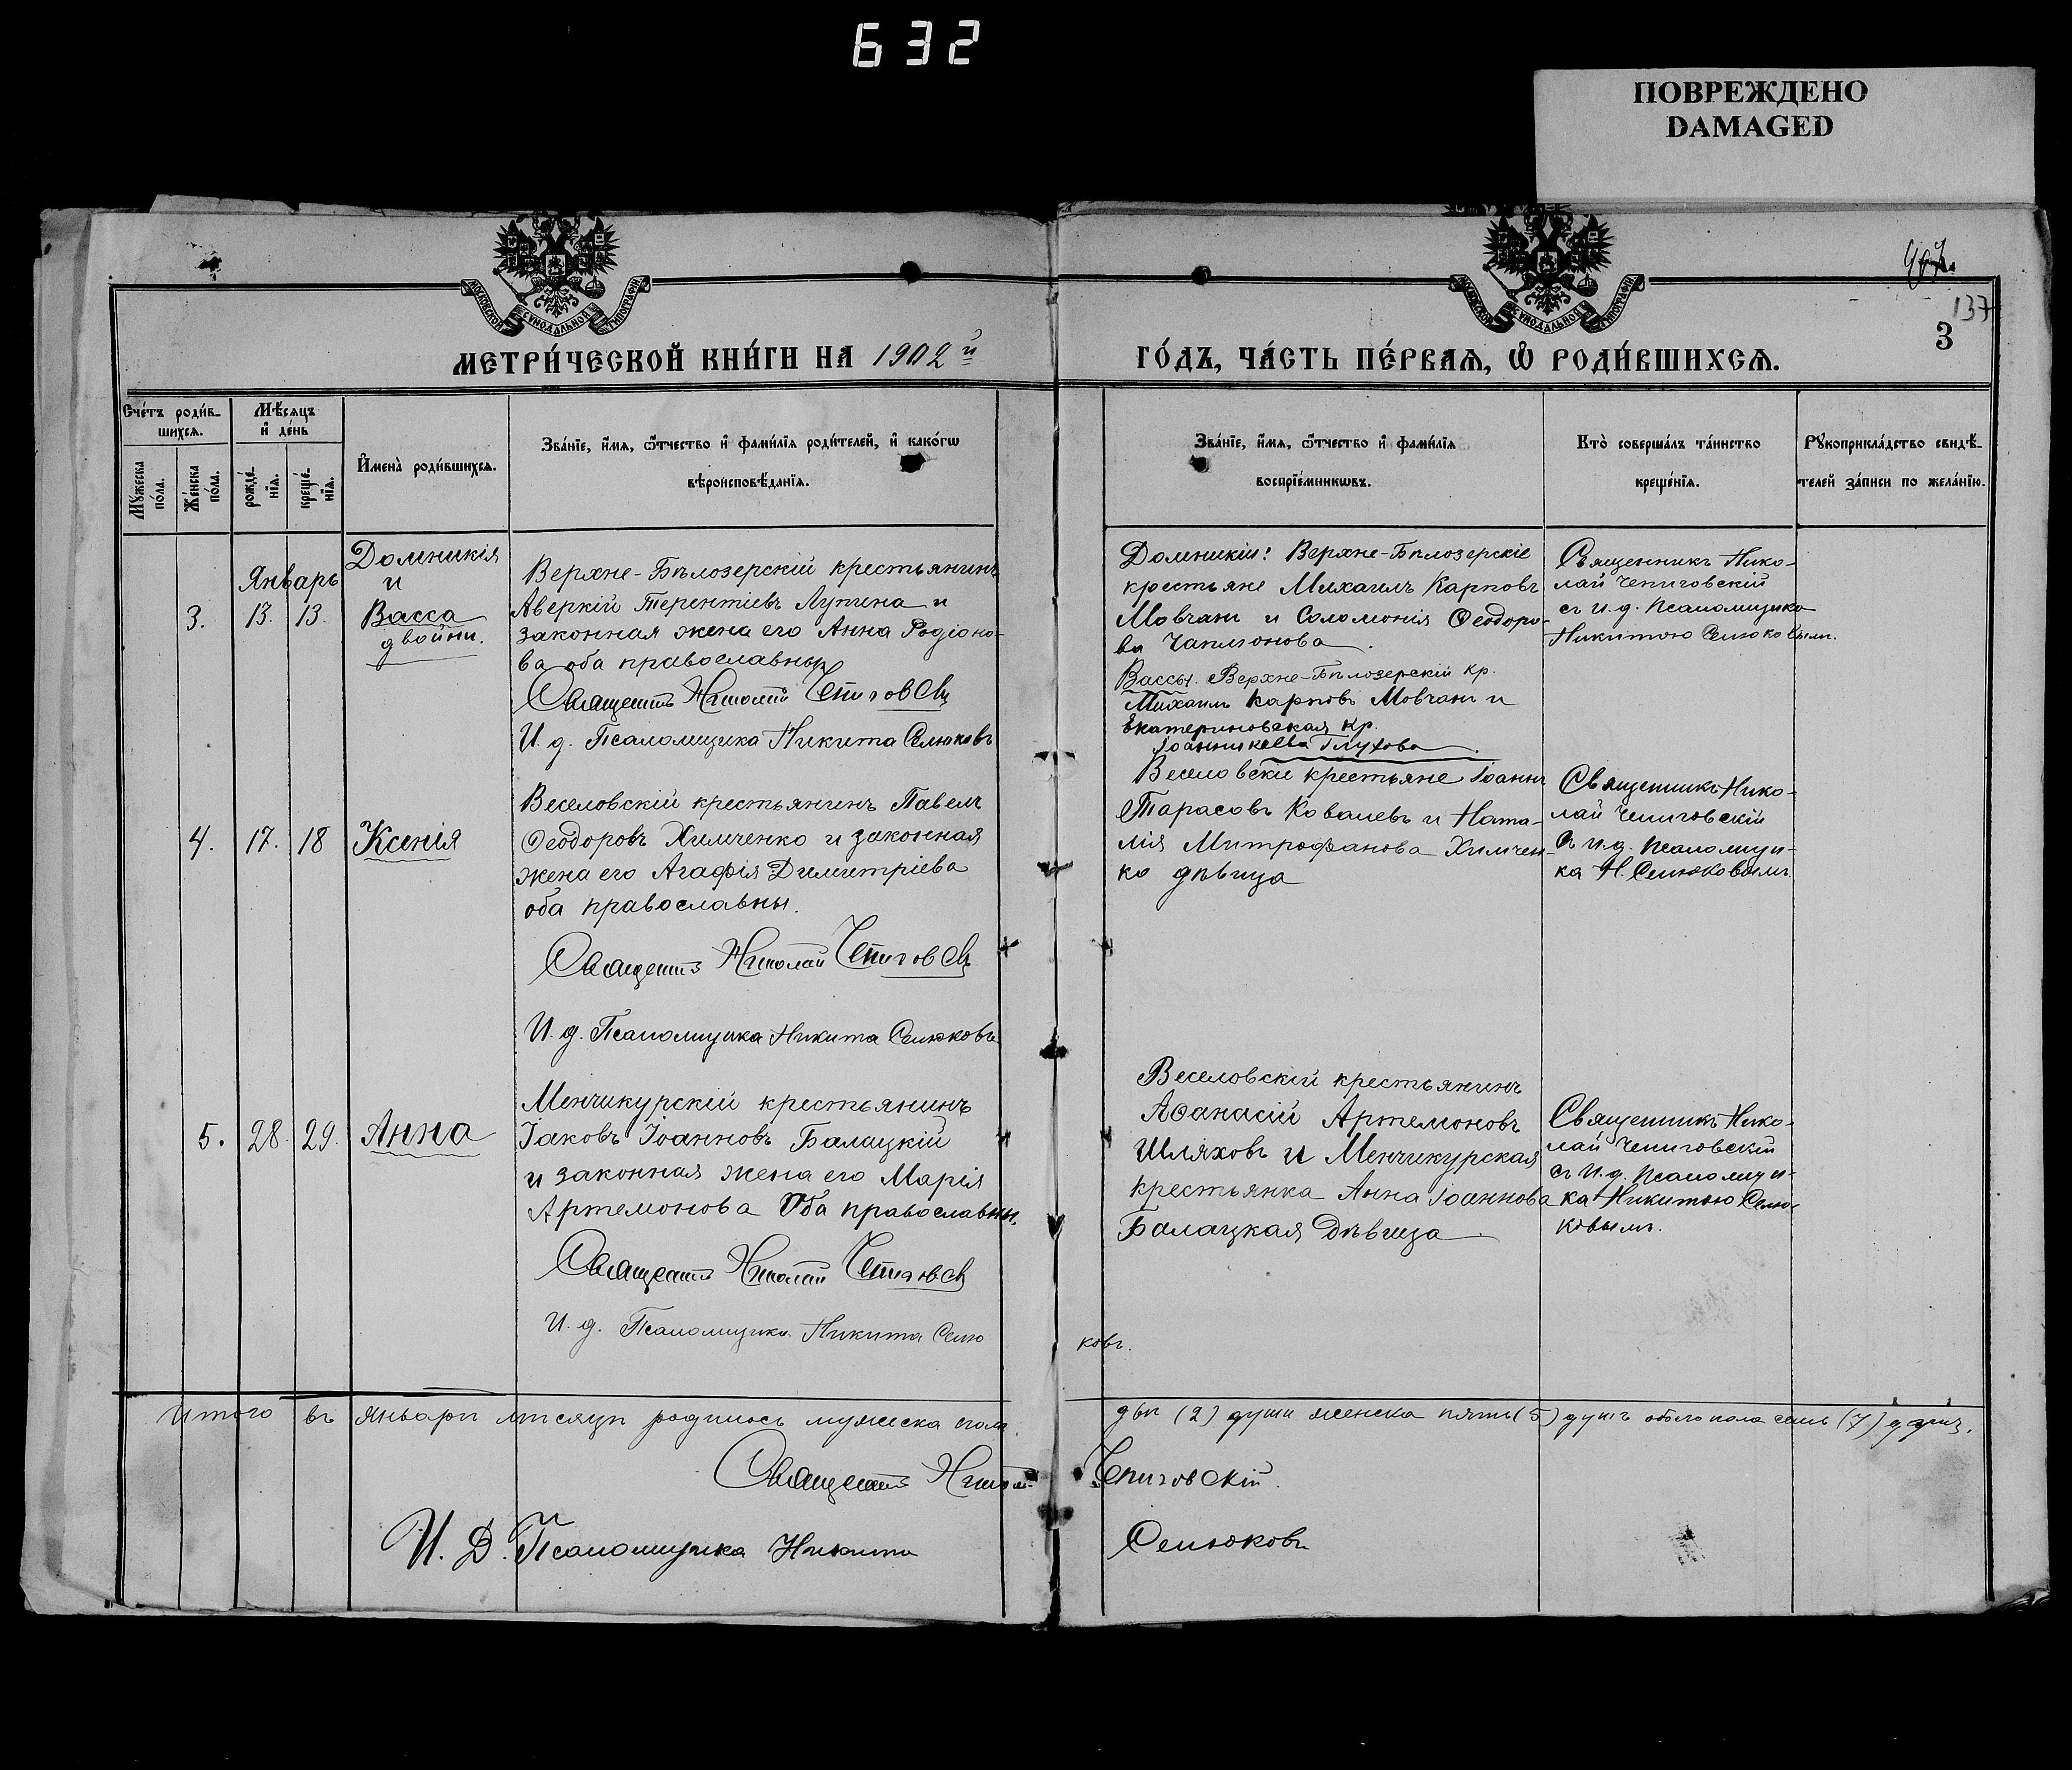 632
ПОВРЕЖДЕНО
DAMAGED
МОСКОВСКОЙ СѴНОДАЛЬНОЙ ТИПОГРАФІИ
МОСКОВСКОЙ СѴНОДАЛЬНОЙ ТИПОГРАФІИ
137
3
МЕТРИ́ЧЕСКОЙ КНИ́ГИ НА 1902 й
ГО́ДЪ, ЧА́СТЬ ПЕ́РВАѦ, Ѽ РОДИ́ВШИХСѦ.
Сче́тъ роди́в-
шихсѧ.
Мѣ́сѧцъ
и҆ де́нь
Мꙋ́жеска
по́ла.
Же́нска
по́ла.
рожде́-
нїѧ.
креще́-
нїѧ.
И҆мена̀ роди́вшихсѧ.
Зва́нїе, и҆́мѧ, ѻ҆́тчество и҆ фами́лїѧ роди́телей, и҆ како́гѡ
вѣроисповѣ́данїѧ.
Зва́нїе, и҆́мѧ, ѻ҆́тчество и҆ фами́лїѧ
воспрїе́мникѡвъ.
Кто̀ соверша́лъ та́инство
креще́нїѧ.
Рꙋкоприкла́дство свидѣ́-
телей за́писи по жела́нїю.
Январь
3. 13. 13.
Домникія
и
Васса
двойни.
Верхне-Бѣлозерскій крестьянинъ
Аверкій Терентіевъ Лупина и
законная жена его Анна Родіоно-
ва оба православны
Священникъ Николай Чепиговскій
И. д. Псаломщика Никита Селюковъ
Домникіи: Верхне-Бѣлозерскіе
крестьяне Михаилъ Карповъ
Мовчанъ и Соломонія Ѳеодоро-
ва Чаплонова.
Вассы. Верхне-Бѣлозерскій кр.
Михаилъ Карповъ Мовчанъ и
Екатериновская кр.
Іоанникеева Глухова.
Священникъ Нико-
лай Чепиговскій
съ и. д. псаломщика
Никитою Селюковымъ.
4. 17. 18
Ксенія
Веселовскій крестьянинъ Павелъ
Ѳеодоровъ Химченко и законная
жена его Агафія Димитріева
оба православны.
Священникъ Николай Чепиговскій
И. д. Псаломщика Никита Селюковъ
Веселовскіе крестьяне Іоаннъ
Тарасовъ Ковалевъ и Ната-
лія Митрофанова Химчен-
ко дѣвица
Священникъ Нико-
лай Чепиговскій
съ и. д. псаломщи-
ка Н. Селюковымъ
5. 28. 29.
Анна
Менчикурскій крестьянинъ
Іаковъ Іоанновъ Балацкій
и законная жена его Марія
Артемонова Оба православны.
Священникъ Николай Чепиговскій
И. д. Псаломщика Никита Селю
ковъ.
Веселовскій крестьянинъ
Аѳанасій Артемоновъ
Шляховъ и Менчикурская
крестьянка Анна Іоаннова
Балацкая Дѣвица.
Священникъ Нико-
лай Чепиговскій
съ и. д. псаломщи-
ка Никитою Селю-
ковымъ.
Итого въ Январѣ мѣсяцѣ родилось мужеска пола
двѣ (2) души женска пять (5) душъ обоего пола семь (7) душъ.
Священникъ Николай Чепиговскій.
И. Д. Псаломщика Никита Селюковъ